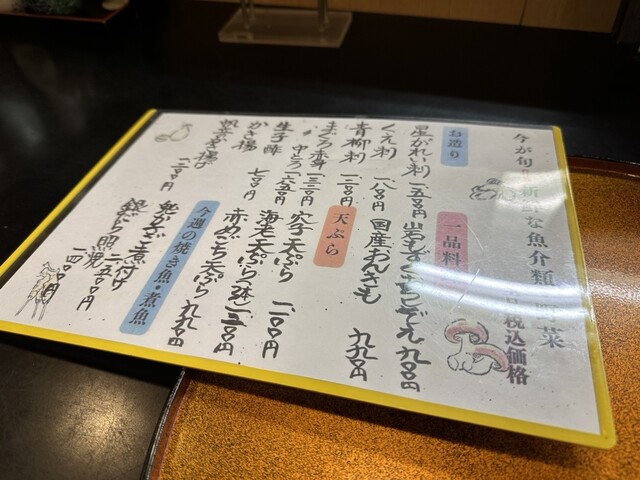 今が旬!!新鮮な魚介類・野菜
税込価格
お造り
星がれい刺 一五〇〇円
くえ刺 一八〇〇円
青柳刺 一二〇〇円
まぐろ赤身 一三二〇円
〃 中とろ 一六五〇円
生子酢 七〇〇円
かき揚
一二〇〇円
一品料
岩もずく 九〇〇円
国産おんさも 九九〇円
天ぷら
穴子天ぷら 一一〇〇円
海老天ぷら
赤めごち天ぷら 九九〇円
今週の焼き魚・煮魚
煮付け 二五〇〇円
銀だら照焼 一四〇〇円